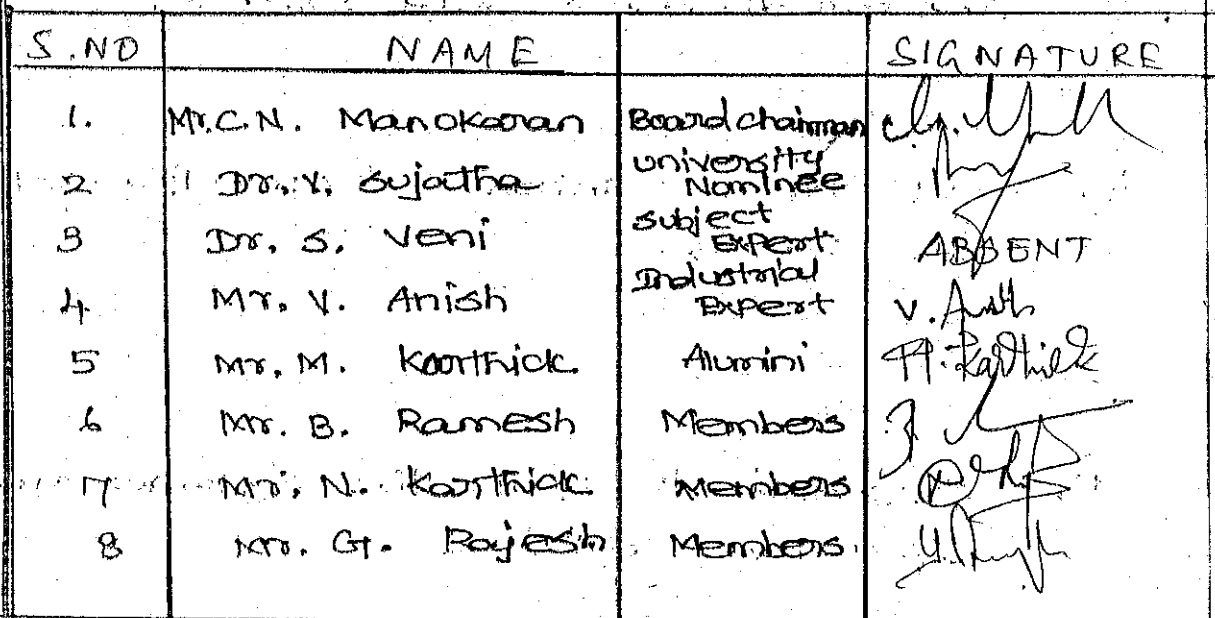 S.NO NAME SIGNATURE
1. Mr.C.N. Manokaran Board chairman
2 Dr. V. Sujatha University Nominee
3 Dr. S. Veni Subject Expert ABSENT
4. Mr. V. Anish Industrial Expert V. Anish
5 Mr. M. Karthick Alumini M. Karthick
6 Mr. B. Ramesh Members
7 Mr. N. Karthick Members
8 Mr. G. Rajesh Members